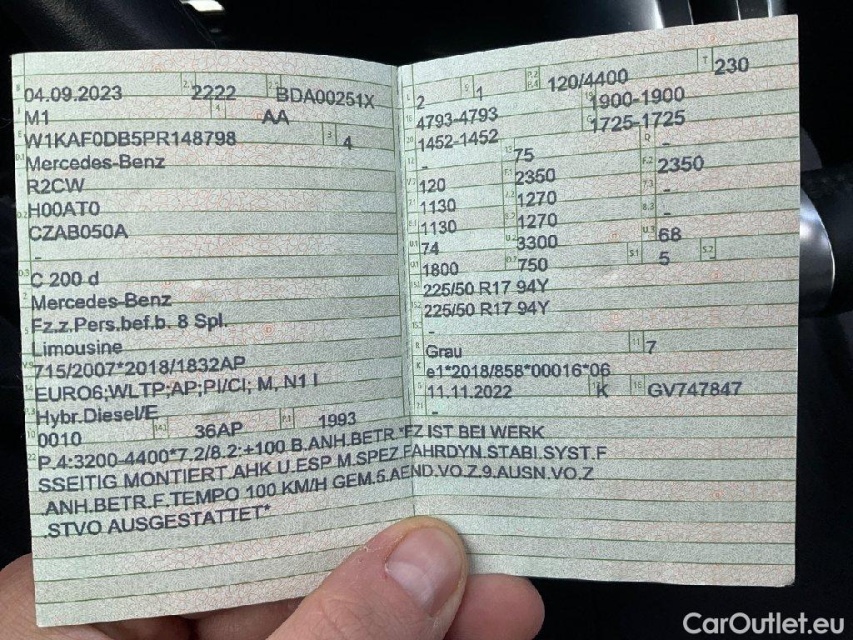 04.09.2023 2222 BDA00251X
M1 AA
W1KAF0DB5PR148798 4
Mercedes-Benz
R2CW
H00AT0
CZAB050A
-
C 200 d
Mercedes-Benz
Fz.z.Pers.bef.b. 8 Spl.
Limousine
715/2007*2018/1832AP
EURO6;WLTP;AP;PI/CI; M, N1 I
Hybr.Diesel/E
0010 36AP 1993
P.4:3200-4400*7.2/8.2:+100 B.ANH.BETR.*FZ IST BEI WERK
SSEITIG MONTIERT.AHK U.ESP M.SPEZ.FAHRDYN.STABI.SYST.F
.ANH.BETR.F.TEMPO 100 KM/H GEM.5.AEND.VO.Z.9.AUSN.VO.Z
.STVO AUSGESTATTET*
2 1 120/4400 230
4793-4793 1900-1900
1452-1452 1725-1725
- 75 -
120 2350 2350
1130 1270 -
1130 1270 -
74 3300 68
1800 750 5
225/50 R17 94Y
225/50 R17 94Y
-
Grau 7
e1*2018/858*00016*06
11.11.2022 K GV747847
-
CarOutlet.eu